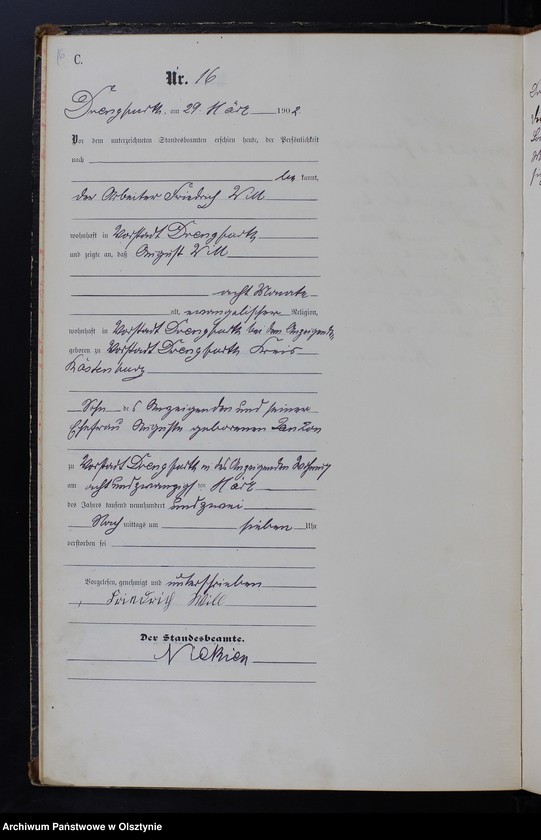 C.
Nr. 16
Drengfurth, am 29. März 1902
Vor dem unterzeichneten Standesbeamten erschien heute, der Persönlichkeit
nach
be kannt,
der Arbeiter Friedrich Will
wohnhaft in Vorstadt Drengfurth
und zeigte an, daß August Will
acht Monate
alt, evangelischer Religion,
wohnhaft in Vorstadt Drengfurth bei dem Anzeigenden,
geboren zu Vorstadt Drengfurth Kreis
Rastenburg
Sohn des Anzeigenden und seiner
Ehefrau Auguste geborenen
zu Vorstadt Drengfurth in des Anzeigenden Wohnung
am acht und zwanzigsten März
des Jahres tausend neunhundert und zwei
Nach mittags um sieben Uhr
verstorben sei
Vorgelesen, genehmigt und unterschrieben
Friedrich Will
Der Standesbeamte.
Archiwum Państwowe w Olsztynie